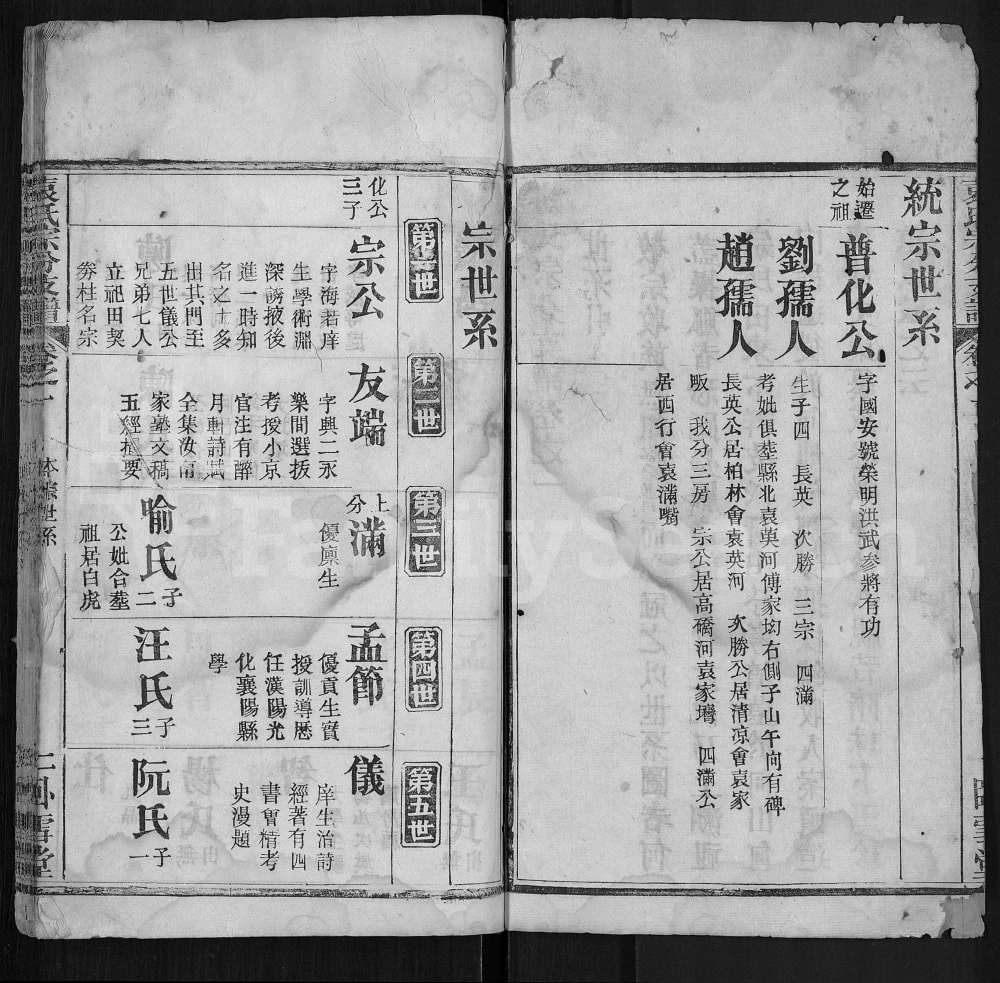 統宗世系
始遷
之祖
普化公
字國安號榮明洪武參將有功
劉孺人
生子四 長英 次勝 三宗 四滿
趙孺人
考妣俱塟縣北袁英河傅家均右側子山午向有碑
長英公居柏林會袁英河 次勝公居清凉會袁家
畈 我分三房 宗公居高礄河袁家塆 四滿公
居西行會袁滿嘴
宗世系
第壹世
第二世
第三世
第四世
第五世
化公
三子
宗公
字海若庠
生學術淵
深誘掖後
進一時知
名之士多
出其門至
五世儀公
兄弟七人
立祀田契
劵柱名宗
友端
字興二永
樂間選拔
考授小京
官注有醉
月軒詩賦
全集汝南
家藝文稿
五經摘要
上
分
滿
優廩生
喻氏
子
二
公妣合塟
祖居白虎
孟節
優貢生實
授訓導歷
任漢陽光
化襄陽縣
學
汪氏
子
三
儀
庠生治詩
經著有四
書會精考
史漫題
阮氏
子
一
袁氏宗分支譜
卷之一
本宗世系
臥雪堂